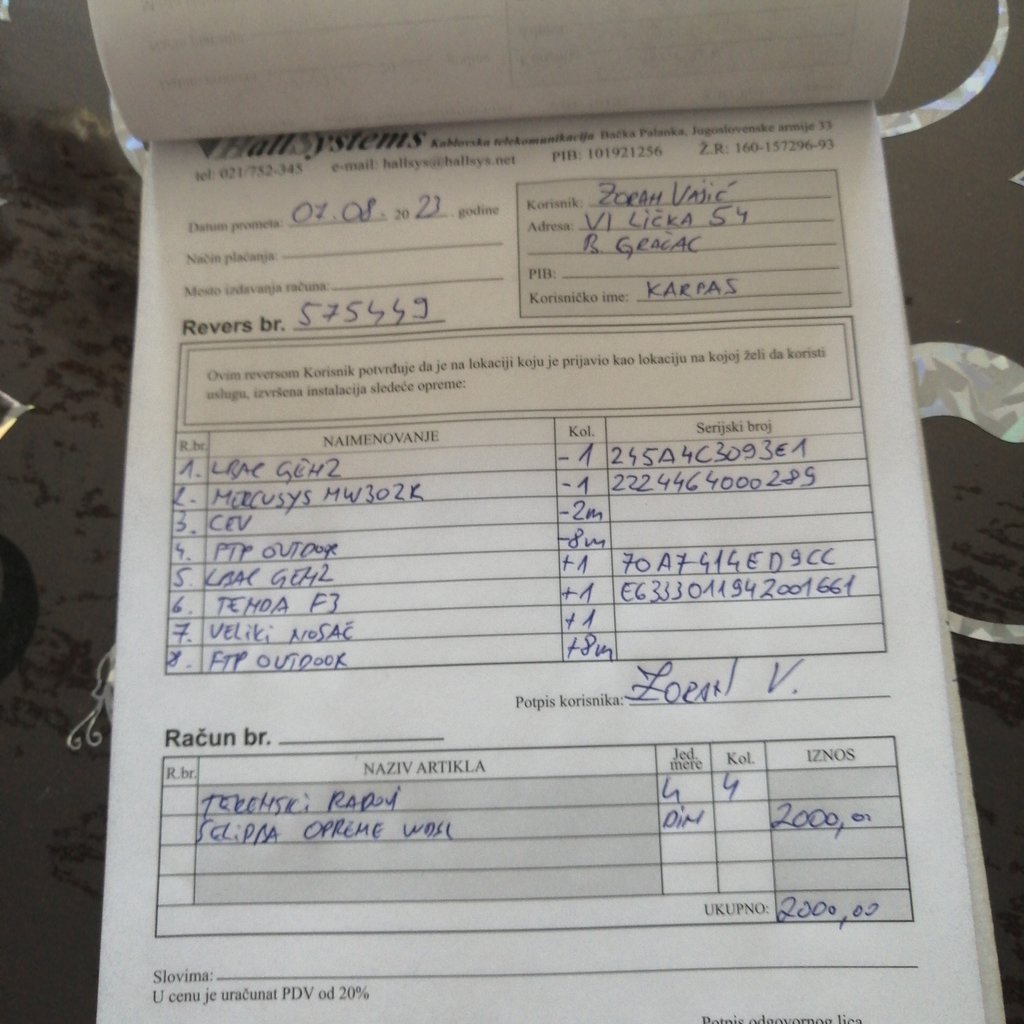 HallSystems Kablovska telekomunikacija Bačka Palanka, Jugoslovenske armije 33
tel: 021/752-345 e-mail: hallsys@hallsys.net PIB: 101921256 Ž.R: 160-157296-93
Datum prometa: 07.08. 20 23. godine
Način plaćanja:
Mesto izdavanja računa:
Revers br. 575449
Korisnik: ZORAN VASIĆ
Adresa: VI LIČKA 54
B. GRAČAC
PIB:
Korisničko ime: KARPAS
Ovim reversom Korisnik potvrđuje da je na lokaciji koju je prijavio kao lokaciju na kojoj želi da koristi
uslugu, izvršena instalacija sledeće opreme:
R.br. NAIMENOVANJE Kol. Serijski broj
1. LBAC GEN2 -1 245A4C3093E1
2. MERCUSYS MW302R -1 2224464000289
3. CEV -2m
4. FTP OUTDOOR -8m
5. LBAC GEN2 +1 70A7414ED9CC
6. TENDA F3 +1 E6333011942001661
7. VELIKI NOSAČ +1
8. FTP OUTDOOR +8m
Potpis korisnika: ZORAN V.
Račun br.
R.br. NAZIV ARTIKLA Jed. mere Kol. IZNOS
TERENSKI RADOVI 4 4
OPREME DIN 2000,00
UKUPNO: 2000,00
Slovima:
U cenu je uračunat PDV od 20%
Potpis odgovornog lica